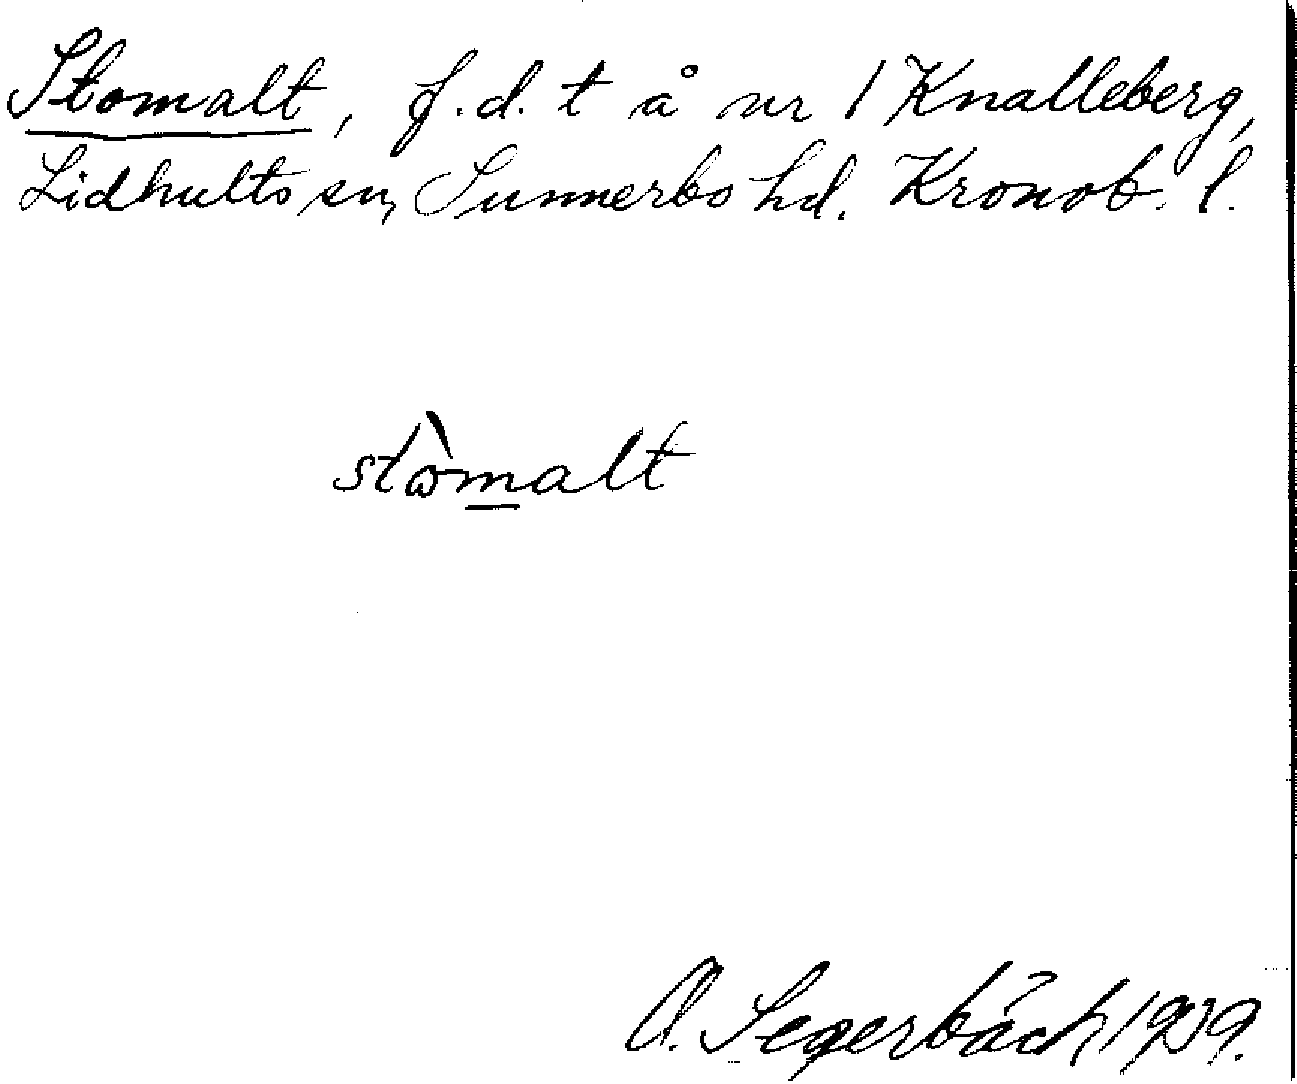 Stomalt, f.d. t å nr 1 Knalleberg,
Lidhults sn, Sunnerbo hd. Kronob. l.
stὼmalt
A. Segerbäck 1939.